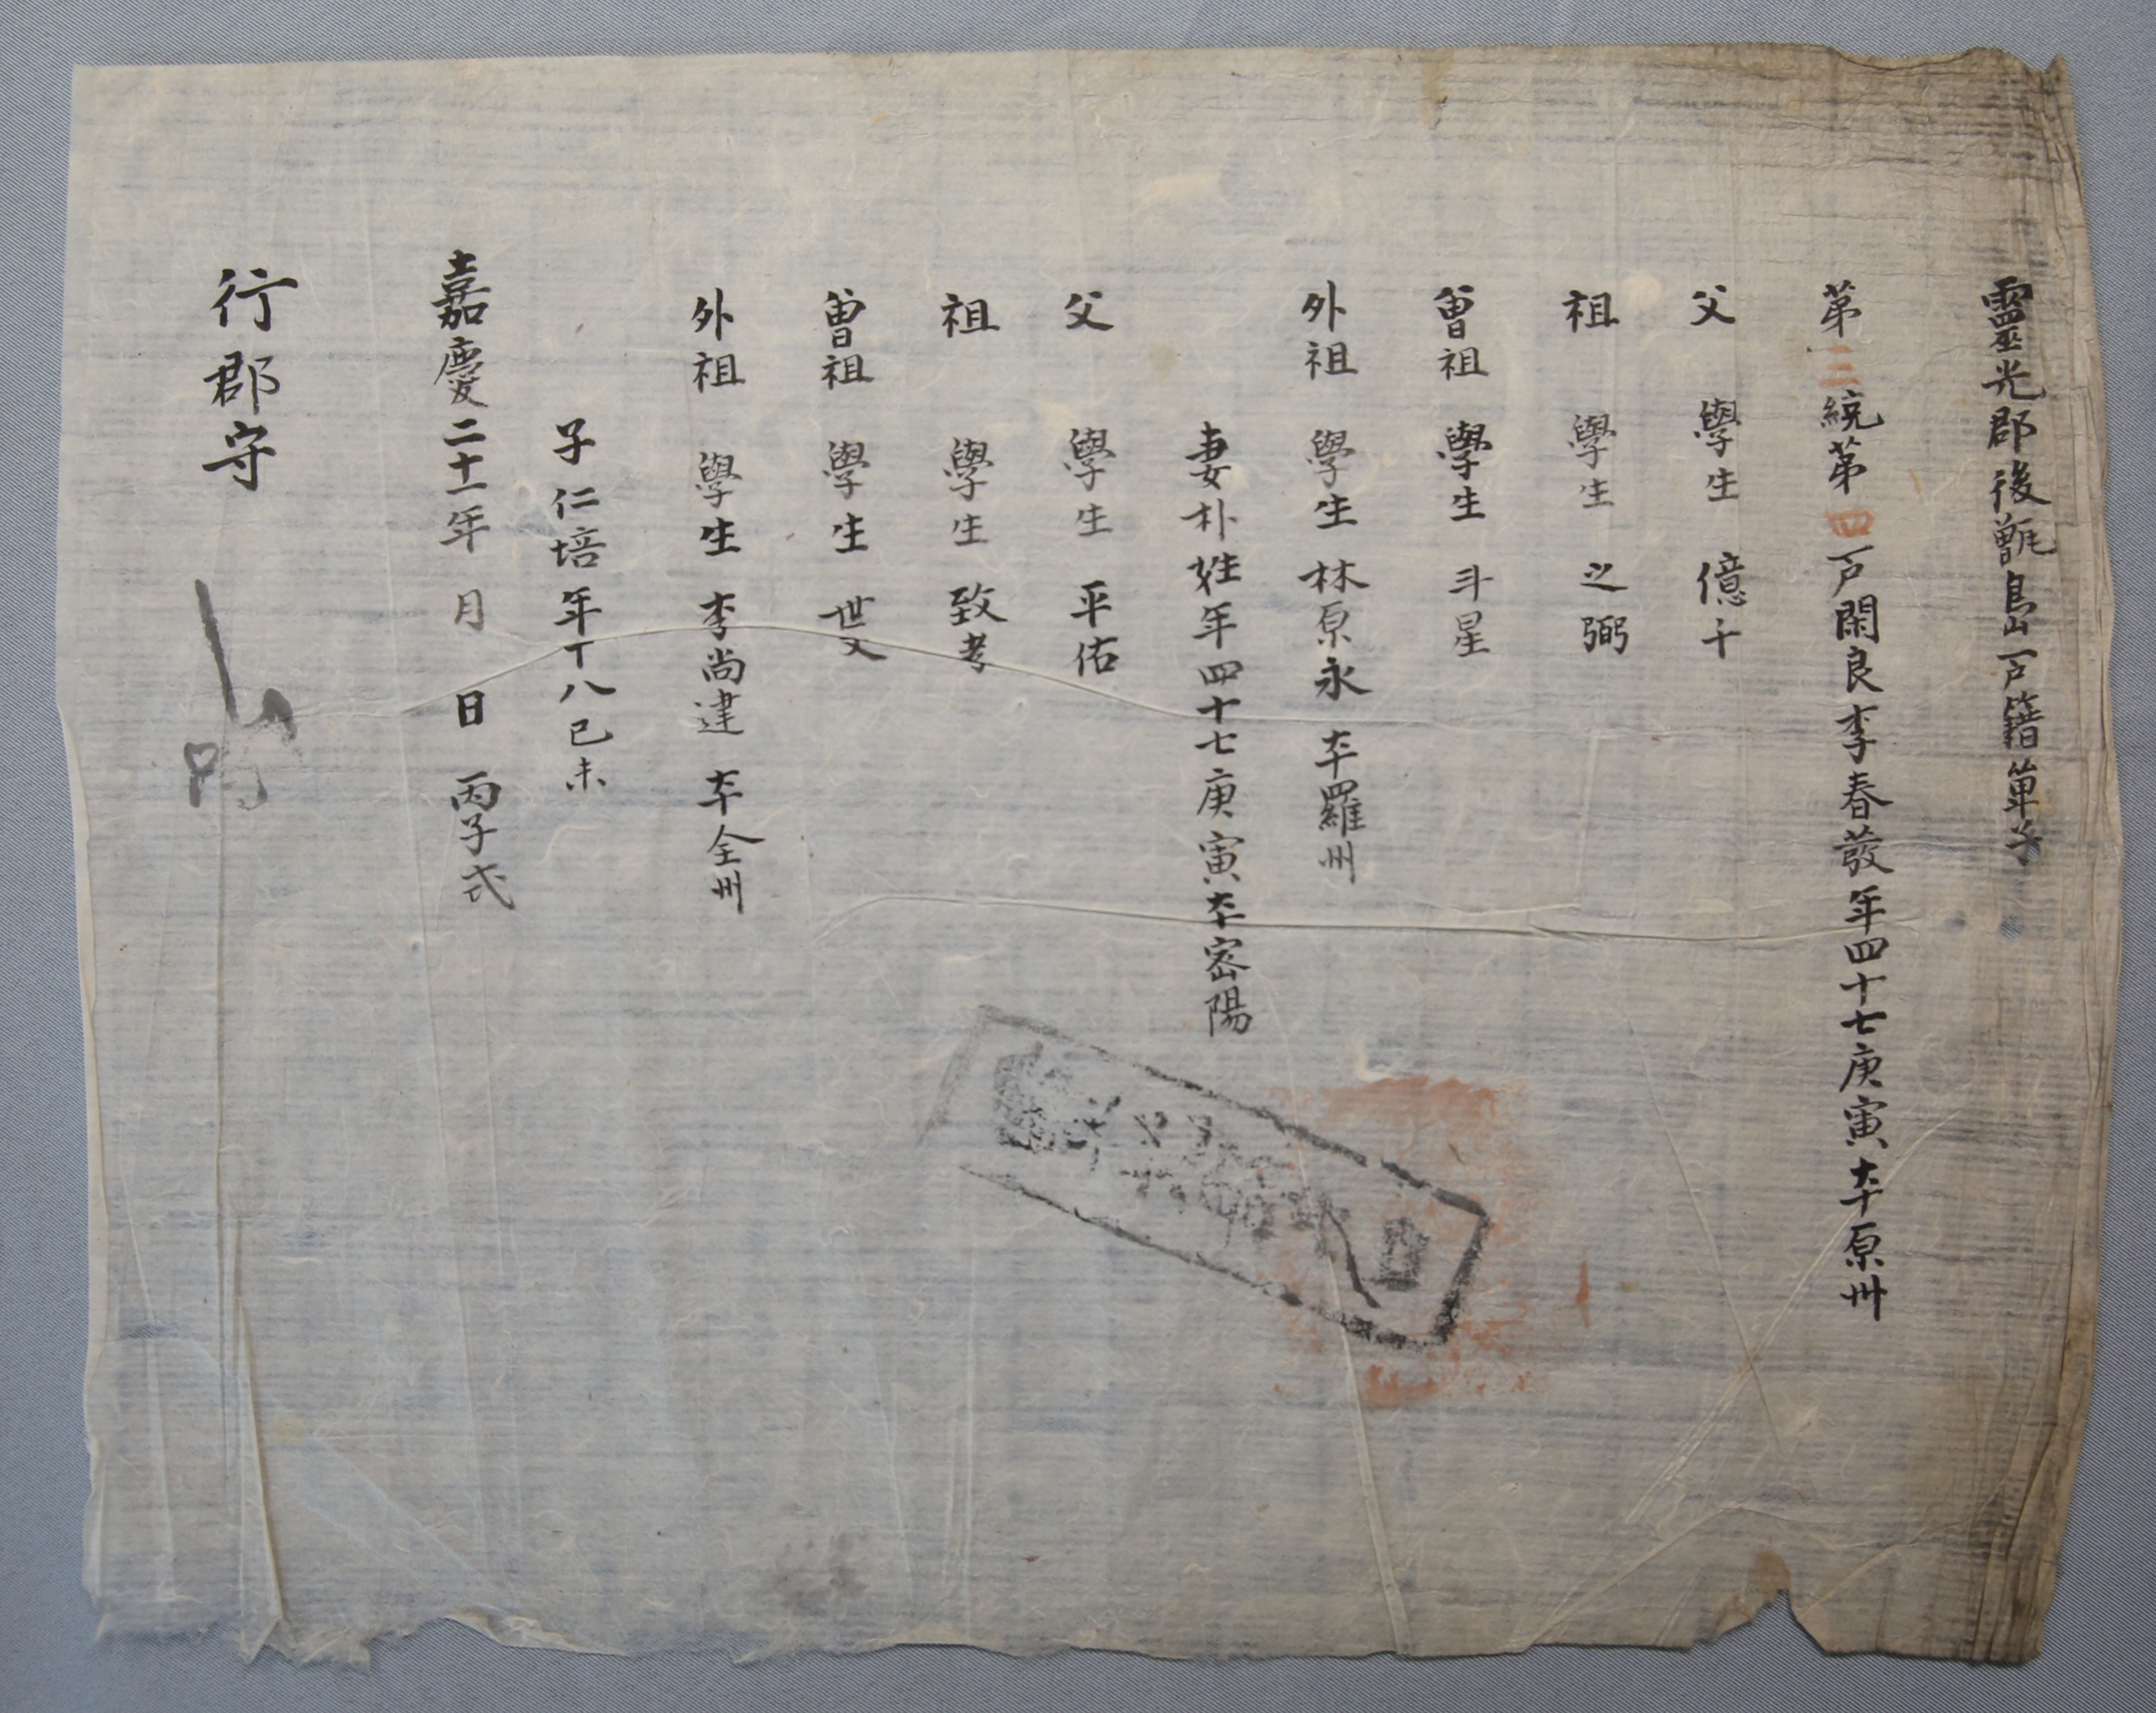 靈光郡後甑島戶籍單子
第三統第四戶閑良李春發年四十七庚寅本原州
父 學生 億千
祖 學生 之弼
曾祖 學生 斗星
外祖 學生 林原永 本羅州
妻朴姓年四十七庚寅本密陽
父 學生 平佑
祖 學生 致孝
曾祖 學生 世文
外祖 學生 李尚建 本全州
子仁培年十八己未
嘉慶二十一年 月 日 丙子式
行郡守